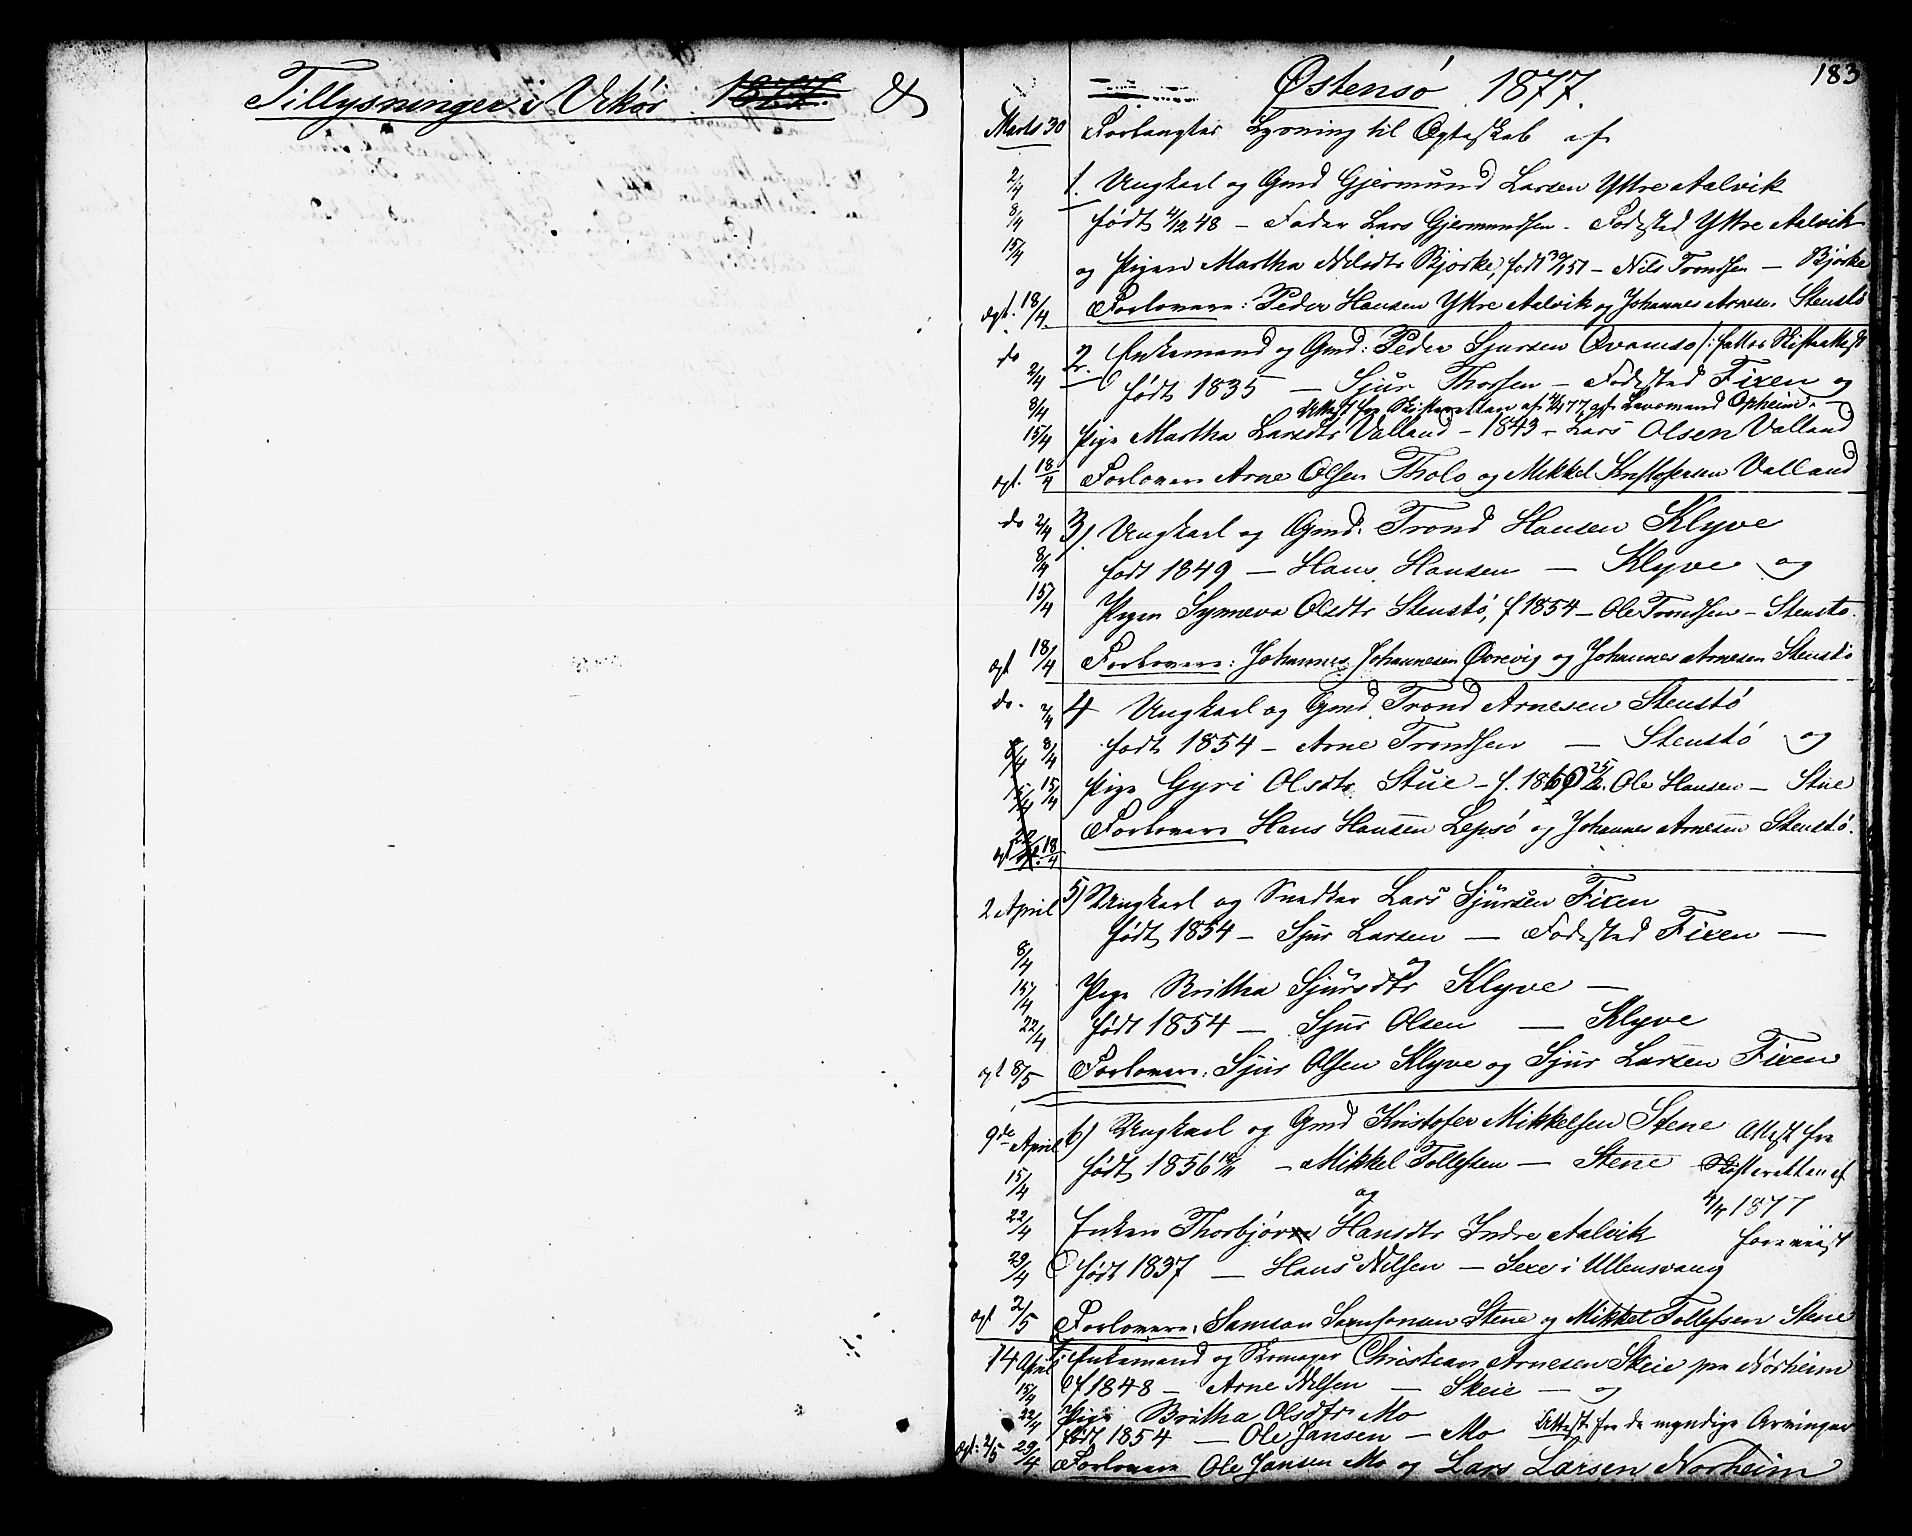 Tillysninger i Vikør 1877. &
Østensø 1877.
183
Marts 30 Forlangtes Lysning til Ægteskab af
2/4 1. Ungkarl og Gmd Gjermund Larsen Yttre Aalvik
8/4 født 4/12 48 – Fader Lars Gjermundsen – Fødested Yttre Aalvik
15/4 og Pigen Martha Nilsdtr Bjørke, født 30/1 51 – Nils Trondsen – Bjørke
ægt. 18/4. Forlovere: Peder Hansen Yttre Aalvik og Johannes Arnesen Stenstø
do 2. Enkemand og Gmd: Peder Sjursen Qvamsø /: fattes Skifteattest
2/4 født 1835 – Sjur Thorsen – Fødested Fixen og
8/4 Attest fra Skifteretten af 4/4 77 gjt. Lensmand Opheim. –
15/4 Pige Martha Larsdtr Valland – 1843 – Lars Olsen Valland
ægt. 18/4 Forlovere Arne Olsen Tholo og Mikkel Kristofersen Valland
do 2/4 3). Ungkarl og Gmd. Trond Hansen Klyve
8/4 født 1849 – Hans Hansen – Klyve og
15/4 Pigen Synneva Olsdtr Stenstø, f 1854 – Ole Trondsen – Stenstø.
ægt 18/4 Forlovere: Johannes Johannesen Øvrevig og Johannes Arnesen Stenstø
do. 2/4 4 Ungkarl og Gmd. Trond Arnesen Stenstø
8/4 8/4 født 1854 – Arne Trondsen – Stenstø og
15/4 15/4 Pige Gyri Olsdtr Stue – f. 1860 25/2. Ole Hansen – Stue
Forlovere Hans Hansen Lepsø og Johannes Arnesen Stenstø.
ægt 22/4 18/4
2 April 5) Ungkarl og Snedker Lars Sjursen Fixen
født 1854 – Sjur Larsen – Fødested Fixen –
8/4 og
15/4 Pige Britha Sjursdtr Klyve –
22/4 født 1854 – Sjur Olsen – Klyve
ægt 8/5 Forlovere: Sjur Olsen Klyve og Sjur Larsen Fixen
9de April 6) Ungkarl og Gmd Kristofer Mikkelsen Stene Attest fra
15/4 født 1856 – Mikkel Tollefsen – Stene Skifteretten af
og 4/4 1877
22/4 Enken Thorbjør Hansdtr Indre Aalvik foreviist
29/4 født 1837 – Hans Nilsen – Sexe i Ullensvang
ægt 2/5 Forlovere: Samson Samsonsen Stene og Mikkel Tollefsen Stene
14 April Enkemand og Skomager Christian Arnesen Skeie paa Nörheim
15/4 f 1848 – Arne Nilsen – Skeie – og
22/4 Pige Britha Olsdtr Mo
født 1854 – Ole Jansen – Mo Attest fra de myndige Arvinger
ægt: 2/5 29/4 Forlovere Ole Jansen Mo og Lars Larsen Norheim